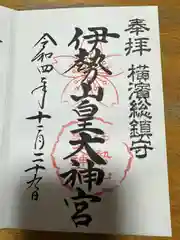 奉拝
横濱総鎮守
伊勢山皇大神宮
令和四年十二月二十九日